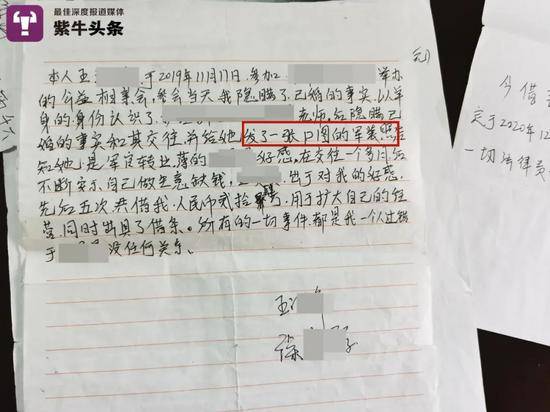 最佳深度报道媒体
紫牛头条
本人王 于2019年11月17日参加 举办
的公益相亲会,参会当天我隐瞒了已婚的事实,以单
身的身份认识了 老师,在隐瞒已
婚的事实和其交往,并给她发了一张P图的军装照,
知她是军 转业 的 好感,在交往一个多月后
不断 示自己做生意缺钱, 出于对我的好感,
先后五次共借我人民币 拾 ,用于扩大自己的经
营,同时出具了借条。所有的一切事件都是我一个人过错
于 没任何关系、
王
徐
今借
定于2020年12
一切法律